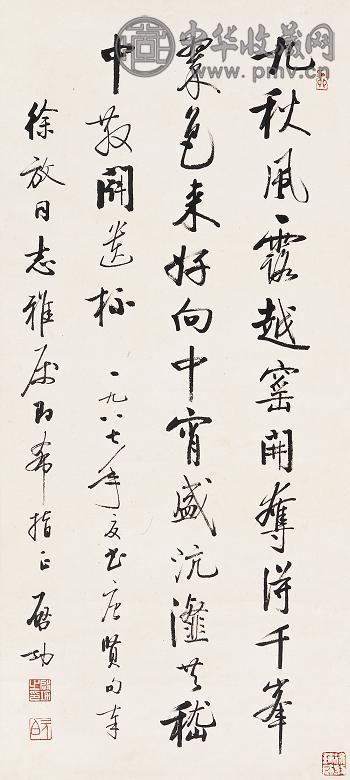 中华收藏网
www.pmv.cn
九秋風露越窑開奪得千峯
翠色来好向中宵盛沆瀣共嵇
中散鬪遺杯 一九八七年夏书唐贤句奉
徐放同志雅属即希指正 启功